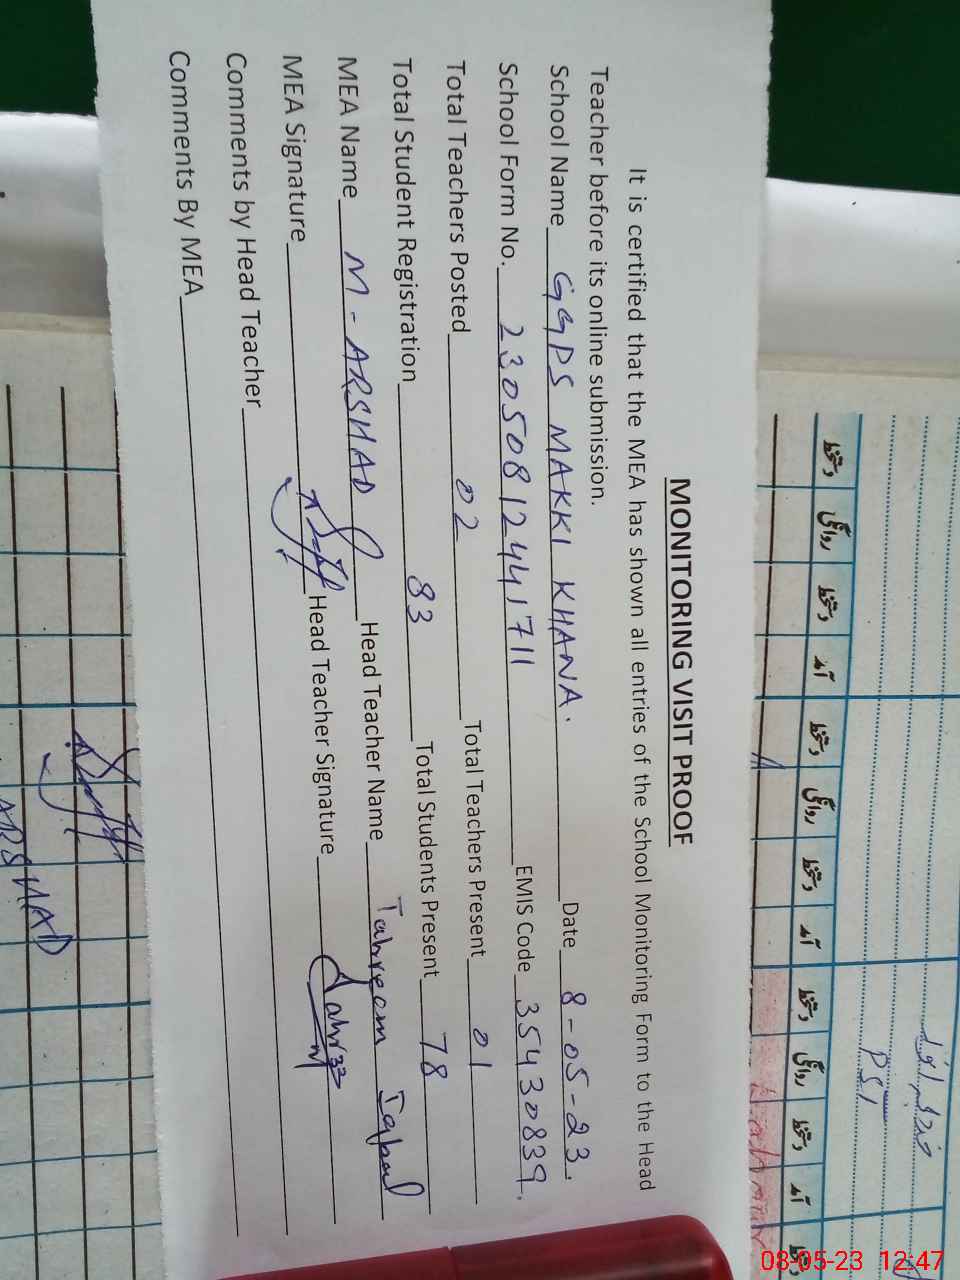 MONITORING VISIT PROOF
It is certified that the MEA has shown all entries of the School Monitoring Form to the Head
Teacher before its online submission.
School Name GGPS MAKKI KHANA. Date 8-05-23.
School Form No. 2305081244171 EMIS Code 35430839.
Total Teachers Posted 02 Total Teachers Present 01
Total Student Registration 83 Total Students Present 78
MEA Name M-ARSHAD Head Teacher Name Tahreem Iqbal
MEA Signature Head Teacher Signature
Comments by Head Teacher
Comments By MEA
PST
دستخط روانگی دستخط آمد دستخط روانگی دستخط آمد دستخط روانگی دستخط آمد دستخط
ARSHAD
08-05-23 12:47